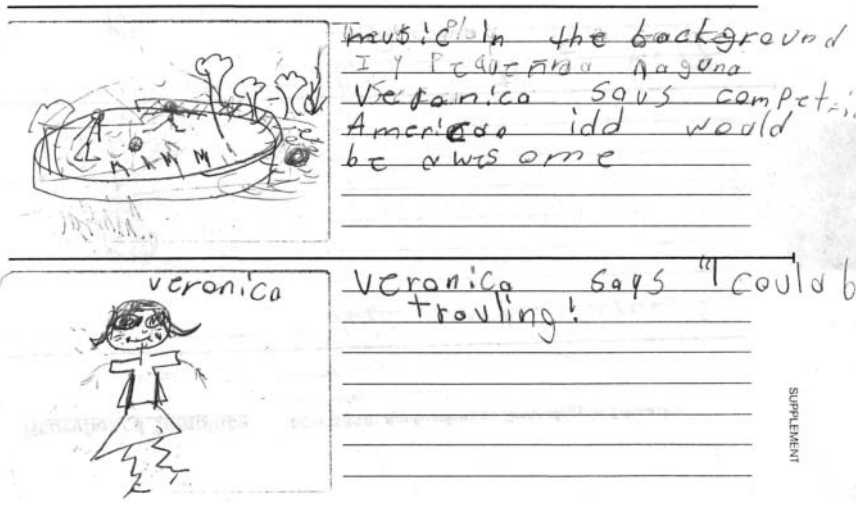 music in the background
I y Pequeñna naguna
Veronica says compet
American idd would
be awesome
veronica
Veronica says "I could b
travling!
SUPPLEMENT